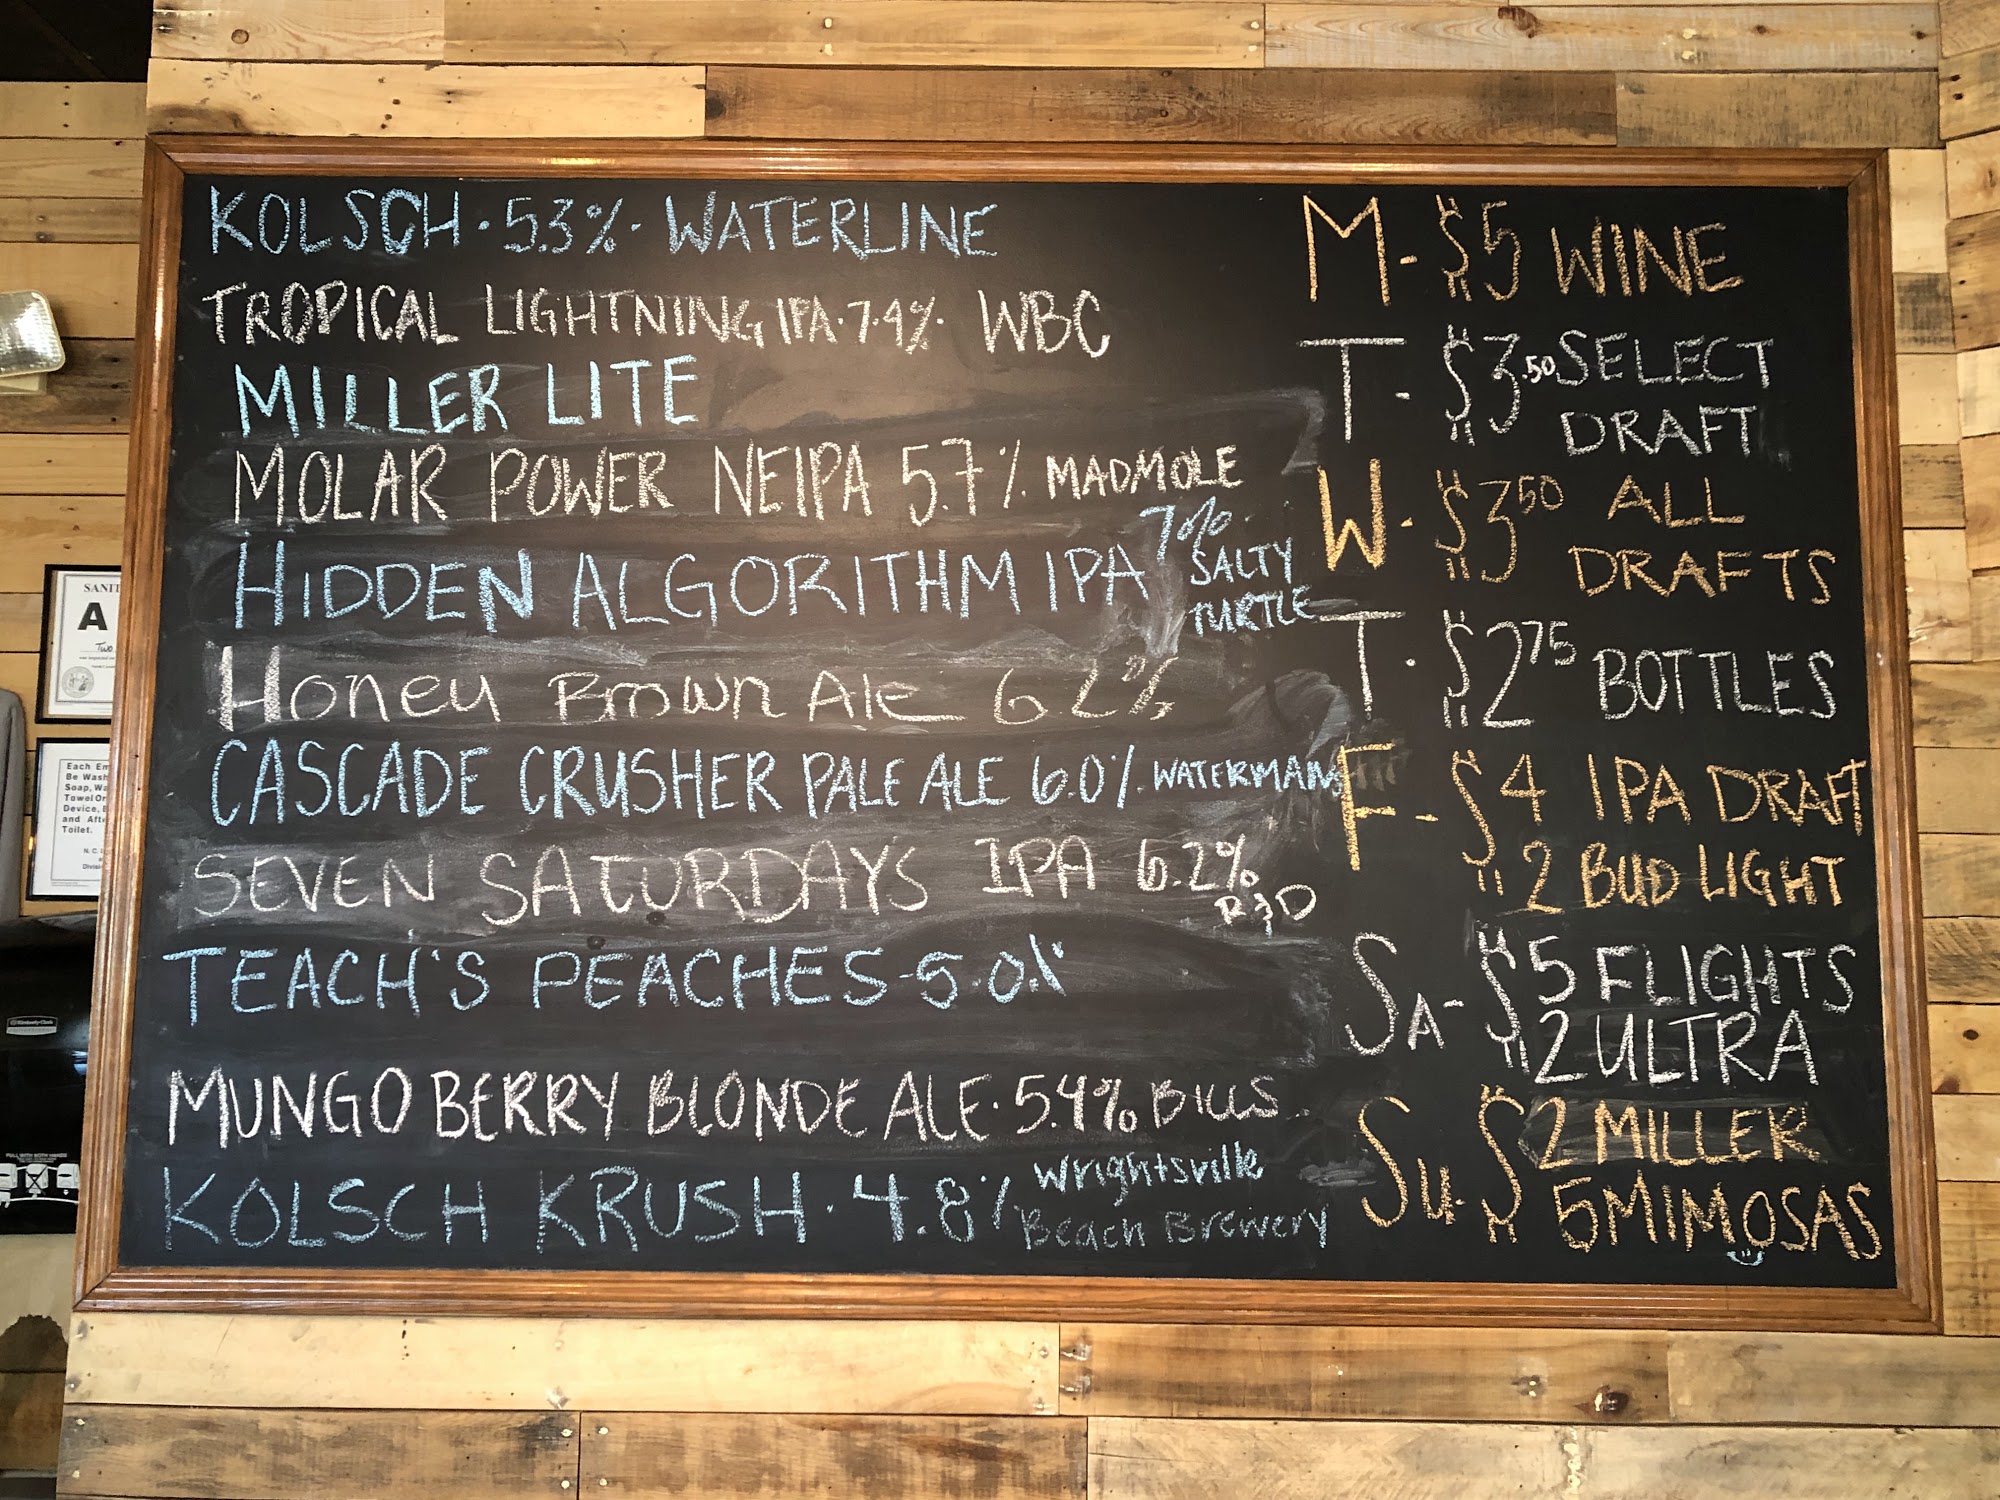 KOLSCH · 5.3% · WATERLINE
TROPICAL LIGHTNING IPA · 7.4% · WBC
MILLER LITE
MOLAR POWER NEIPA 5.7% MADMOLE
HIDDEN ALGORITHM IPA 7%
SALTY
TURTLE
Honey Brown Ale 6.2%
CASCADE CRUSHER PALE ALE 6.0% WATERMANS
SEVEN SATURDAYS IPA 6.2%
R&D
TEACH'S PEACHES - 5.0%
MUNGO BERRY BLONDE ALE · 5.4% BILLS
KOLSCH KRUSH · 4.8% Wrightsville
Beach Brewery
M - $5 WINE
T - $3.50 SELECT
DRAFT
W - $3.50 ALL
DRAFTS
T - $2.75 BOTTLES
F - $4 IPA DRAFT
2 BUD LIGHT
SA - $5 FLIGHTS
2 ULTRA
Su - $2 MILLER
5 MIMOSAS
SANIT
A
Two
Each Em
Be Wash
Soap, Wa
Towel Or
Device, B
and Afte
Toilet.
N. C.
Division
Kimberly-Clark
PULL WITH BOTH HANDS